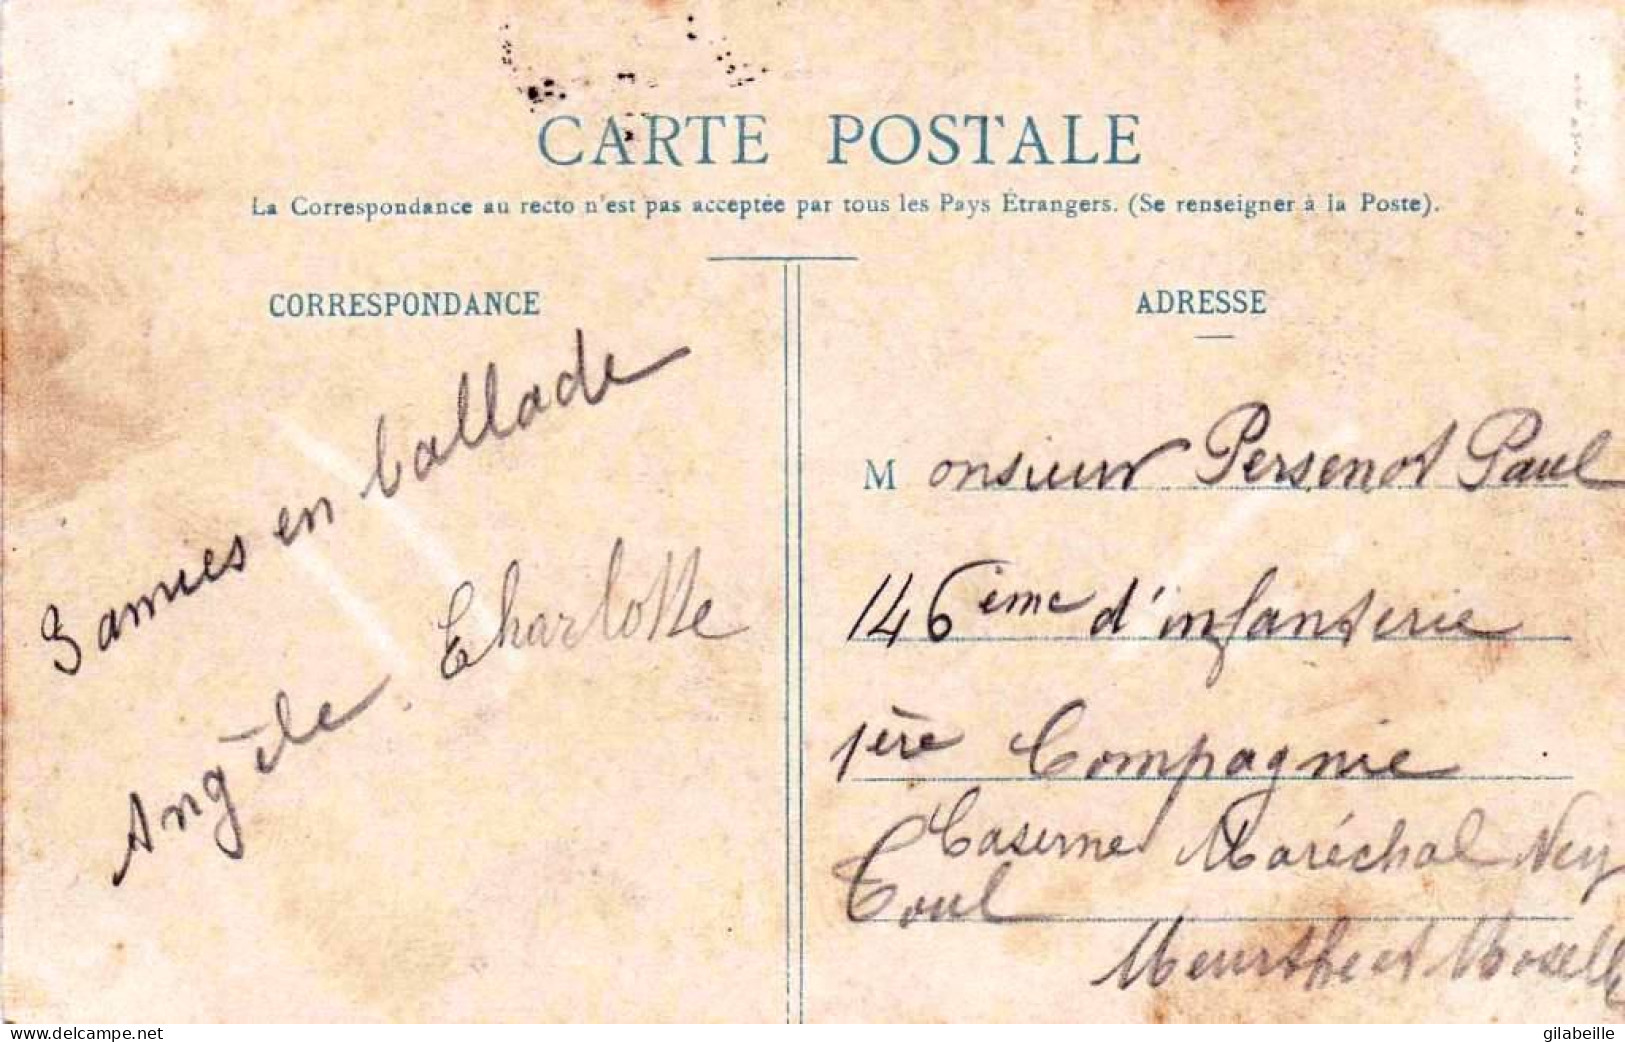 CARTE POSTALE
La Correspondance au recto n'est pas acceptée par tous les Pays Étrangers. (Se renseigner à la Poste).
CORRESPONDANCE
3 amies en ballade
Angèle. Charlotte
ADRESSE
Monsieur Persenot Paul
146ème d'infanterie
1ère Compagnie
Caserne Maréchal Ney
Toul
Meurthe et Moselle
www.delcampe.net
gilabeille